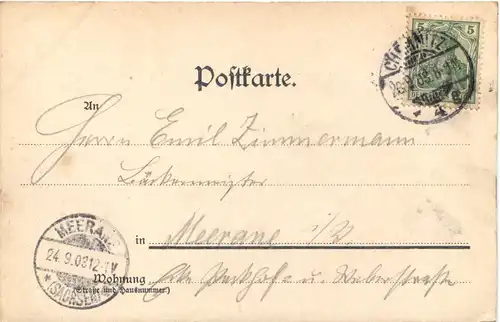 5 5
CHEMNITZ
Postkarte.
An
Herrn Emil Zimmermann
Bäckermeister
MEERANE
24.9.03 12-1V
* (SACHSEN) *
in Meerane i/S
Wohnung
(Straße und Hausnummer)
Ecke Posthof- u Weberstraße